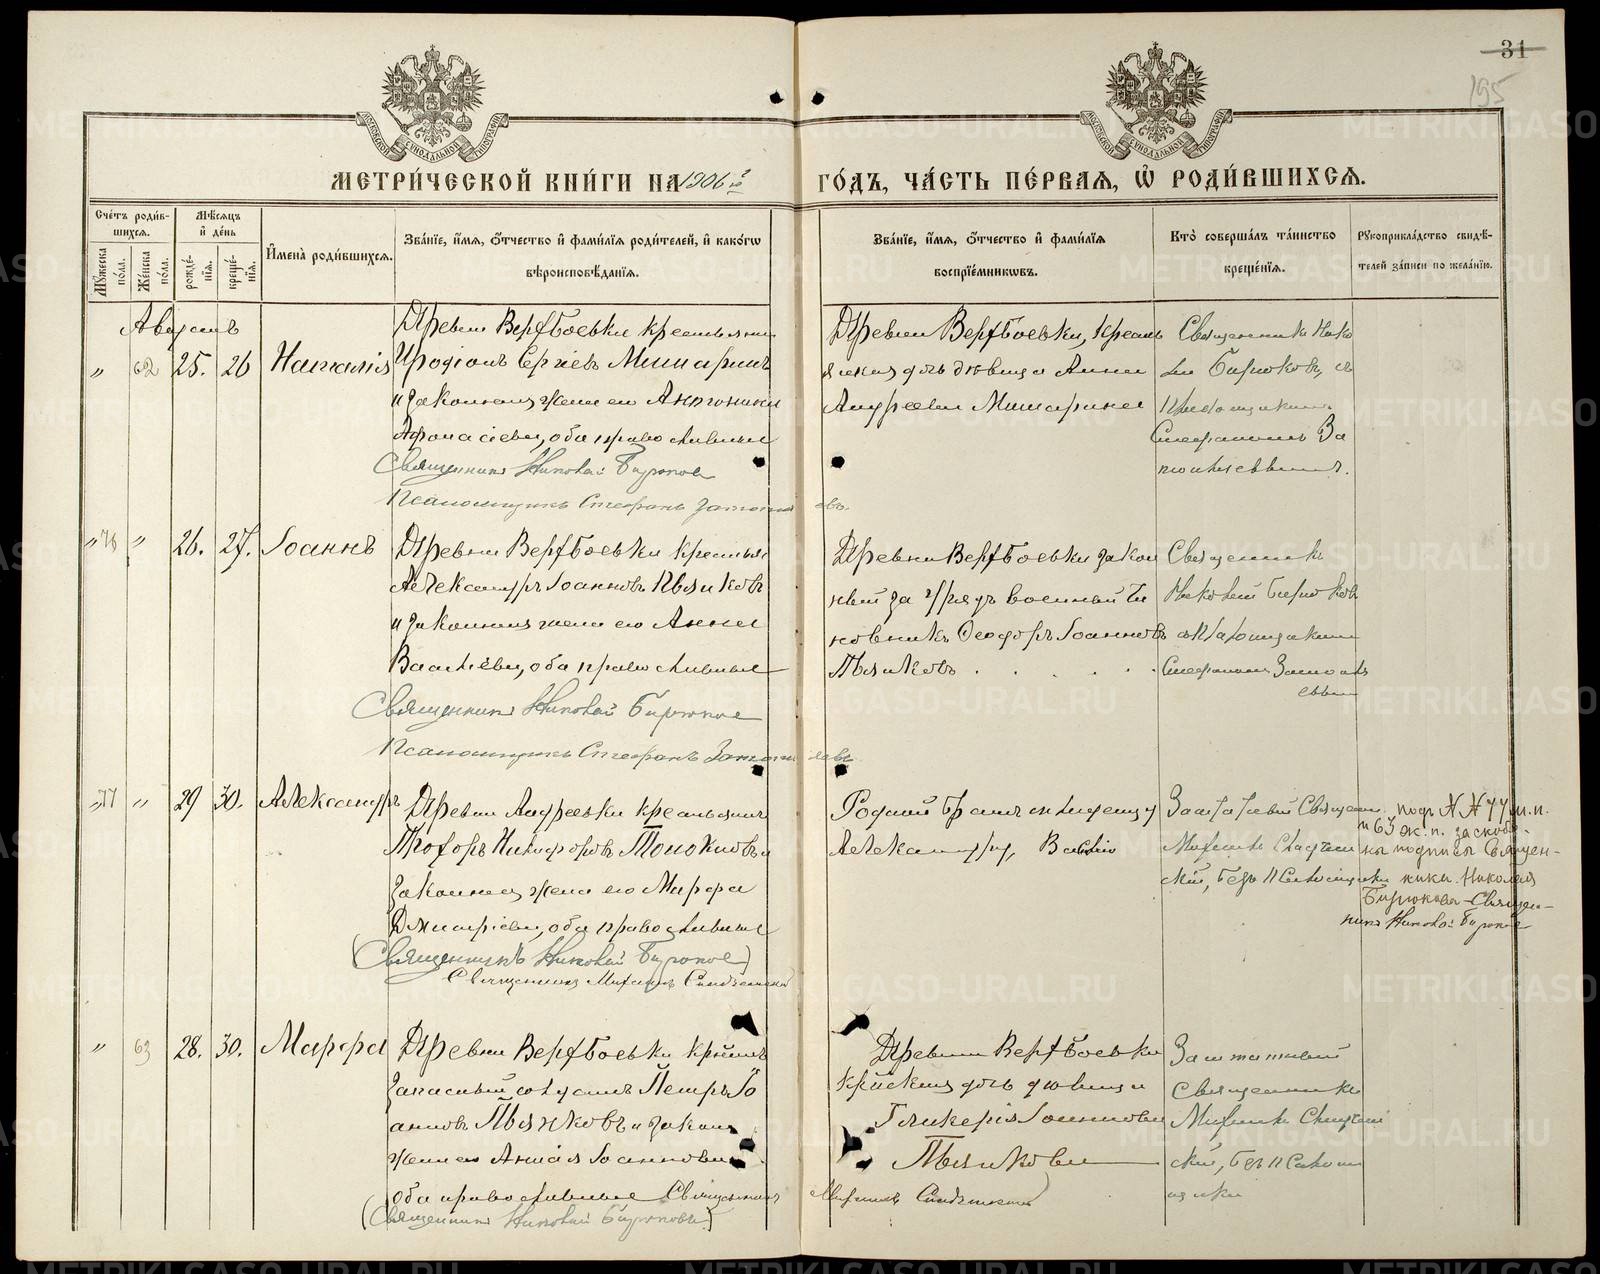 31
195
МЕТРИ́ЧЕСКОЙ КНИ́ГИ НА 1906 й
ГО́ДЪ, ЧА́СТЬ ПЕ́РВАЯ, Ѡ҆ РОДИ́ВШИХСЯ.
Сче́тъ роди́в-
шихся.
Мѣ́сяцъ
и҆ де́нь
Мꙋ́жеска по́ла.
Же́нска по́ла.
рожде́-
нїѧ.
креще́-
нїѧ.
И҆мена̀ роди́вшихся.
Зва́нїе, и҆́мя, ѻ҆́тчество и҆ фами́лїя роди́телей, и҆ како́гѡ
вѣроисповѣ́данїя.
Зва́нїе, и҆́мя, ѻ҆́тчество и҆ фами́лїя
воспрїе́мникѡвъ.
Кто̀ соверша́лъ та́инство
креще́нїя.
Рꙋкоприкла́дство свидѣ́-
телей за́писи по жела́нїю.
Августъ
" 62 25. 26 Наталія
Деревни Верхбоевки крестьянинъ
Иродіонъ Сергіевъ Мишаринъ
и законная жена его Антонина
Афонасіева, оба православные
Священникъ Николай Бирюков
Псаломщикъ Стефанъ
Деревни Верхбоевки, крестъ
янская дочь дѣвица Анна
Андреева Мишарина
Священникъ Нико
лай Бирюковъ, съ
Псаломщикомъ
Стефаномъ За
" 76 " 26. 27. Іоаннъ
Деревни Верхбоевки крестьян
Александръ Іоанновъ Пьянковъ
и законная жена его Анна
Васильева, оба православные
Священникъ Николай Бирюков
Псаломщикъ Стефанъ
Деревни Верхбоевки
военный чи
новникъ Ѳеодоръ Іоанновъ
Пьянковъ
Священникъ
Николай Бирюковъ
съ Псаломщикомъ
Стефаномъ
" 77 " 29 30. Александръ
Деревни Андреевки крестьянинъ
Прохоръ Никифоровъ Толокновъ и
законная жена его Марфа
Димитріева, оба православные
(Священникъ Николай Бирюков)
Священникъ Михаилъ
Родной братъ младенцу
Александру, Василій
Заштатный Священ
Михаилъ
скій, безъ Псаломщика
подъ №№ 77 м.п.
и 63 ж.п. заскобле-
ны подписи Священ-
ника Николая
Бирюкова - Священ-
никъ Николай Бирюков
" 63 28. 30. Марфа
Деревни Верхбоевки кр̃нинъ
Запасный солдатъ Петръ Іо
анновъ Пьянковъ и закон
жена его Анна Іоаннова
оба православные Священникъ
(Священникъ Николай Бирюковъ)
Деревни Верхбоевки
кр̃нская дочь дѣвица
Гликерія Іоаннова
Пьянкова
Михаилъ
Заштатный
Священникъ
Михаилъ
скій, безъ Псалом
щика